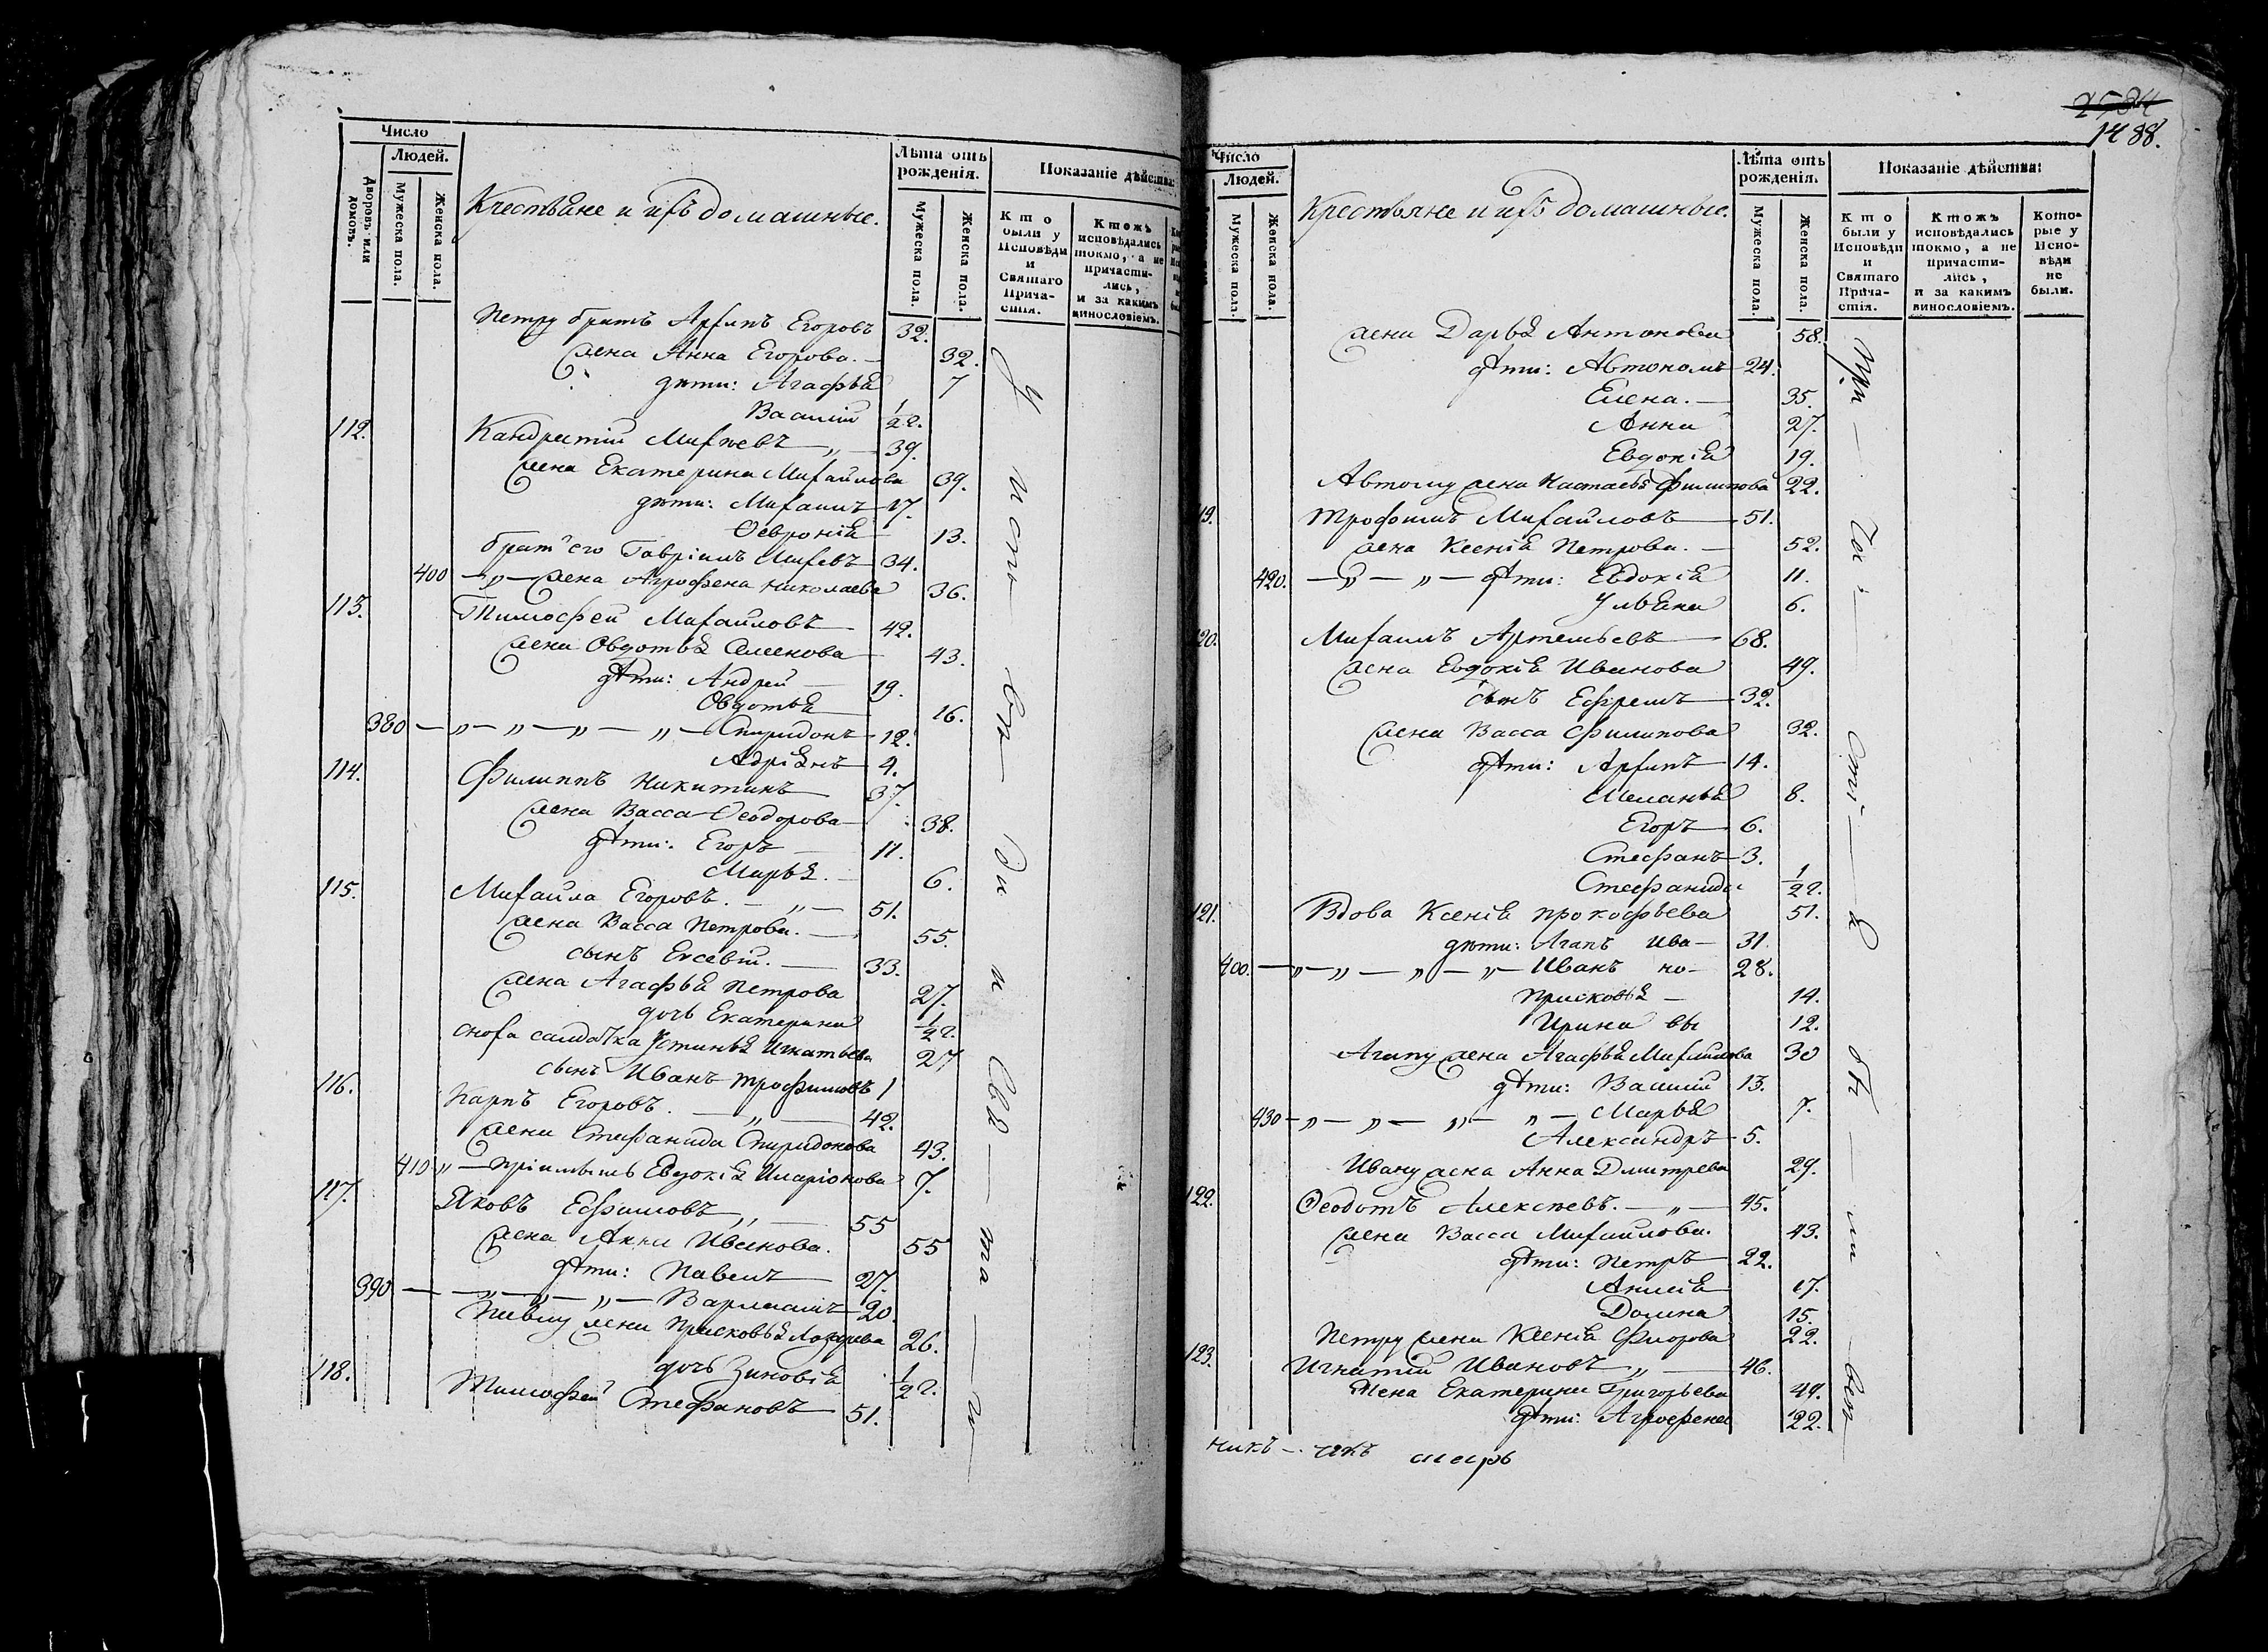 Число
Людей.
Дворовъ или домовъ.
Мужеска пола.
Женска пола.
Крестьяне и ихъ домашные.
Лѣта отъ рожденія.
Мужеска пола.
Женска пола.
Показаніе дѣйства:
Кто были у Исповѣди и Святаго Причастія.
Ктожъ исповѣдались токмо, а не причастились, и за какимъ винословіемъ.
Петру братъ Архипъ Егоровъ 32.
жена Анна Егорова. — 32.
дѣти: Агафья 7
Василій 1/2 г.
112. Кандратій Михѣевъ „ — 39.
жена Екатерина Михайлова 39.
дѣти: Михаилъ 17.
Ѳевронія 13.
братъ его Гавріилъ Михѣевъ 34.
400 — „ — жена Агрофена Николаева 36.
113. Тимофей Михайловъ 42.
жена Овдотья Семенова 43.
дѣти: Андрей — 19.
Овдотья 16.
380 — „ — „ — „ — „ — Спиридонъ 12.
Адріянъ 4.
114. Филиппъ Никитинъ 37.
жена Васса Ѳеодорова 38.
дѣти: Егоръ — 11.
Марья. — 6.
115. Михайла Егоровъ. — „ — 51.
жена Васса Петрова. — 55.
сынъ Евсевій. — 33.
жена Агафья Петрова 27.
дочь Екатерина 1/2 г.
сноха салдатка Устинья Игнатьева 27
сынъ Иванъ Трофимовъ 1
116. Карпъ Егоровъ. — „ — 42.
жена Стефанида Спиридонова 43.
410 „ — пріимышъ Евдокія Иларіонова 7.
117. Яковъ Ефимовъ „ — 55
жена Анна Иванова. 55
дѣти: Павелъ 27.
390 — — „ — „ — „ — Варламъ 20.
Павлу жена Прасковья Лазарева 26.
дочь Зиновія 1/2 г.
118. Тимофей Стефановъ 51.
У — испо — вѣ — ди и Свя — та — го
1488.
Число
Людей.
Мужеска пола.
Женска пола.
Крестьяне и ихъ домашные.
Лѣта отъ рожденія.
Мужеска пола.
Женска пола.
Показаніе дѣйства:
Кто были у Исповѣди и Святаго Причастія.
Ктожъ исповѣдались токмо, а не причастились, и за какимъ винословіемъ.
Которые у Исповѣди не были.
жена Дарья Антонова 58.
дѣти: Автономъ 24.
Елена. — 35.
Анна 27.
Евдокія 19.
Автому жена Настасья Филипова 22.
19. Трофимъ Михайловъ 51.
жена Ксенія Петрова. — 52.
420. — „ — „ — дѣти: Евдокія 11.
Ульяна 6.
20. Михаилъ Артемьевъ 68.
жена Евдокія Иванова 49.
сынъ Ефремъ 32.
жена Васса Филипова 32.
дѣти: Архипъ 14.
Меланья 8.
Егоръ 6.
Стефанъ 3.
Стефанида 1/2 г.
121. Вдова Ксенія Прокофьева 51.
дѣти: Агапъ Ива — 31.
400. — „ — „ — „ — „ — Иванъ но — 28.
Прасковья — 14.
Ирина вы 12.
Агапу жена Агафья Михайлова 30
дѣти: Василій 13.
430 — „ — „ — „ — „ — Марья 7.
Александръ 5.
Ивану жена Анна Дмитрева 29.
122. Ѳеодотъ Алексѣевъ. — „ — 45.
жена Васса Михайлова. 43.
дѣти: Петръ 22.
Анисія 17.
Домна 15.
Петру жена Ксенія Флорова 22.
123. Игнатій Ивановъ „ — 46.
Жена Екатерина Григорьева 49.
дѣти: Агрофена 22.
При — ча — сті — я бы — ли — вси